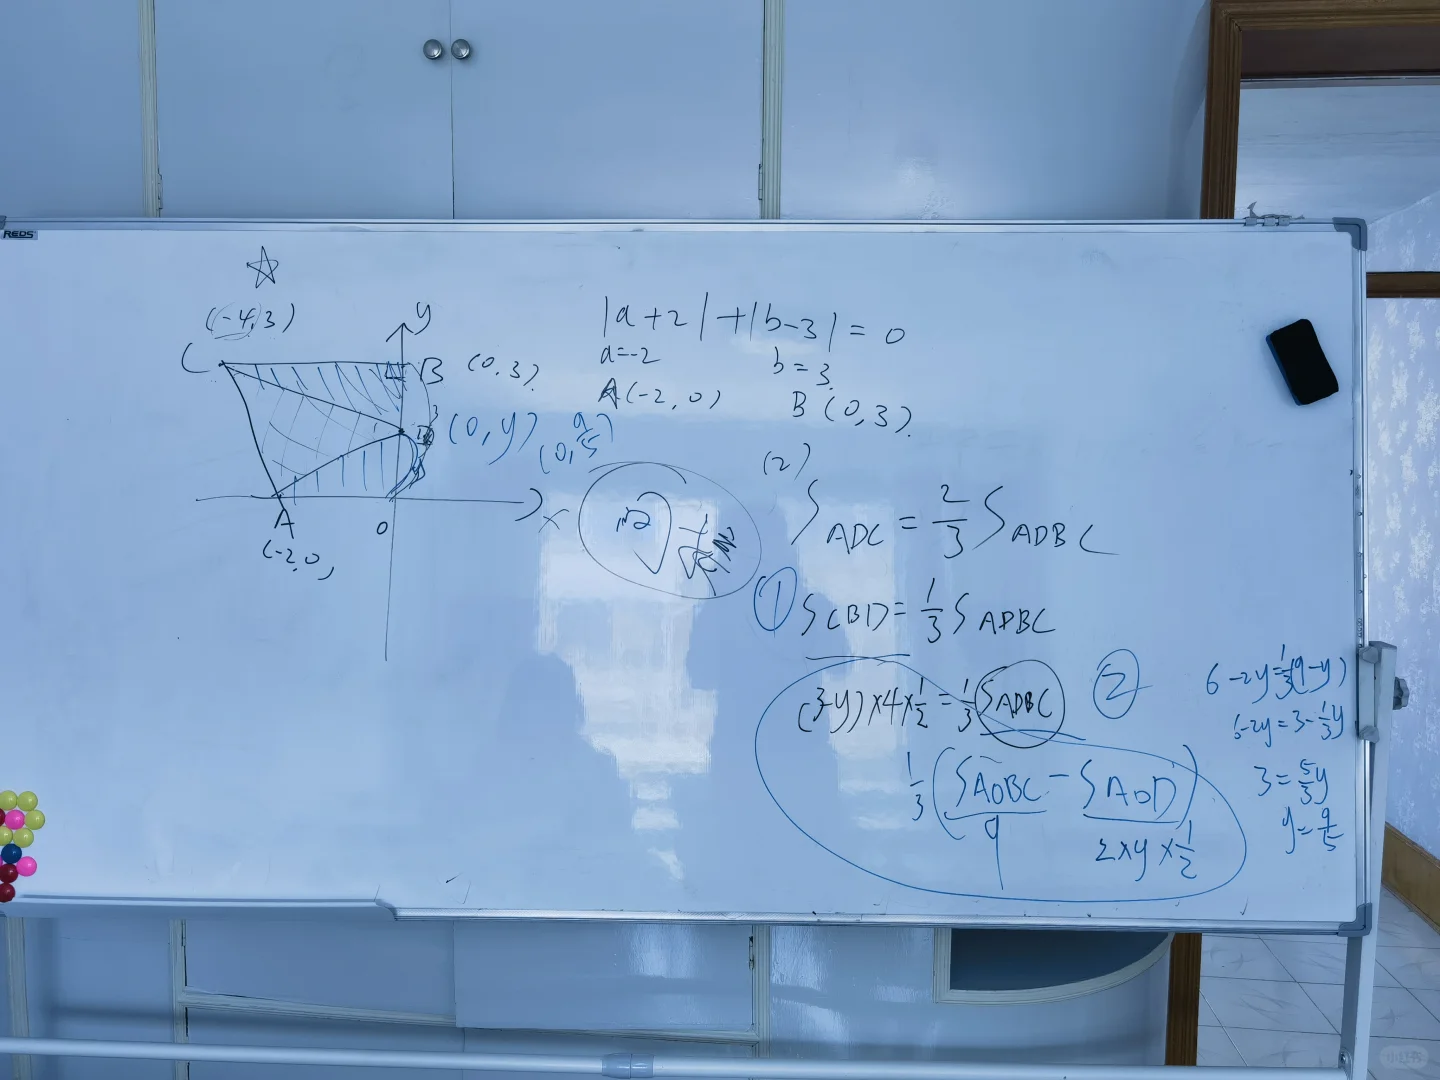 REDS
(-4,3)
y
C
B (0,3)
D (0,y) (0,9/5)
A
0
x
(-2,0)
|a+2|+|b-3|=0
a=-2 b=3
A(-2,0) B(0,3)
(2)
S ADC = 2/3 S ADBC
① S CBD = 1/3 S ADBC
(3-y)×4×1/2 = 1/3 S ADBC ②
1/3 (S AOBC - S AOD)
9 2×y×1/2
6-2y=1/3(9-y)
6-2y=3-1/3y
3=5/3y
y=9/5
小红书